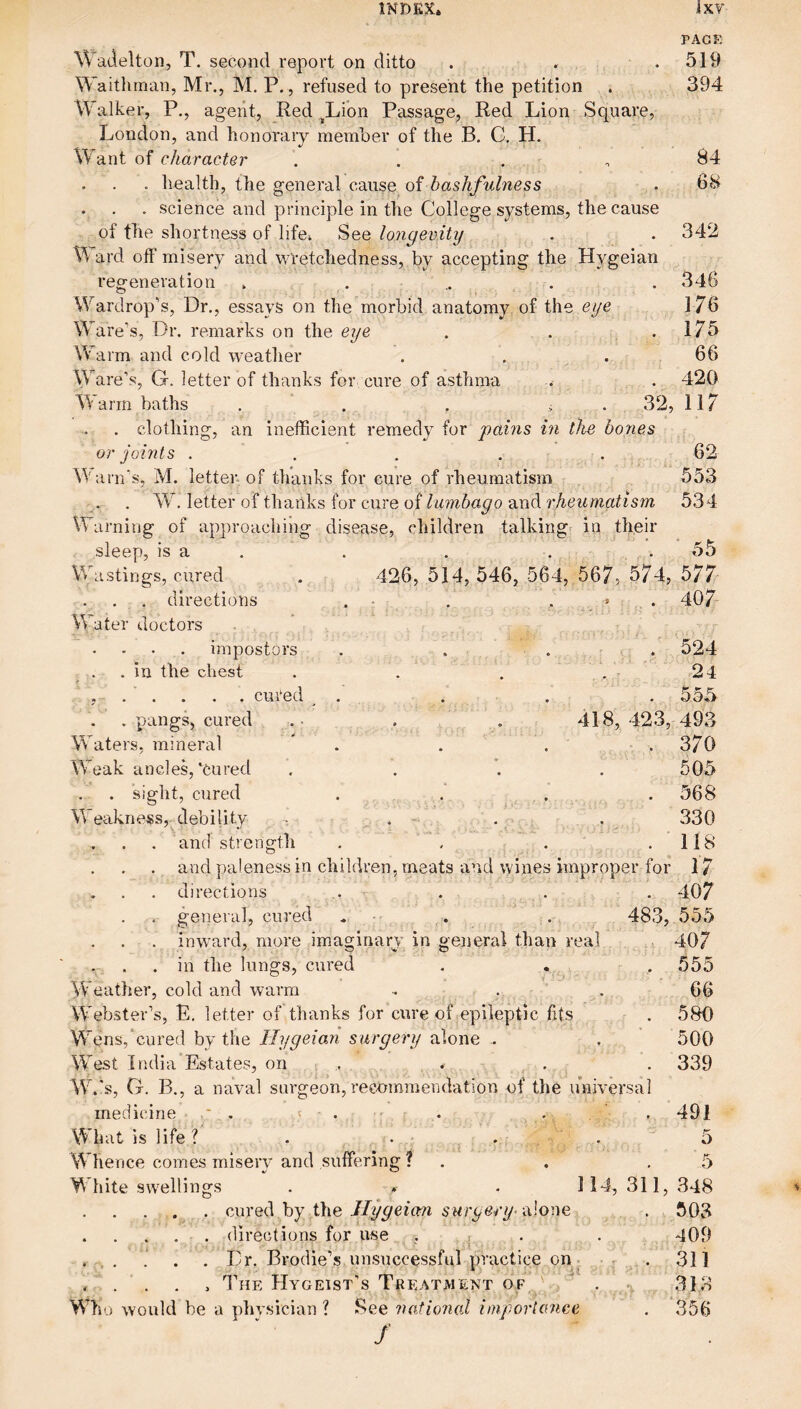 INDEX. lxv
PAGE
Wadelton, T. second report on ditto . . . 519
Waithman, Mr., M. P., refused to present the petition . 394
Walker, P., agent, Red Lion Passage, Red Lion Square,
London, and honorary member of the B. C. H.
Want of character . . . . 84
. . . health, the general cause of bashfulness . 68
. . . science and principle in the College systems, the cause
of the shortness of life. See longevity . . 342
Ward off misery and wretchedness, by accepting the Hygeian
regeneration . . . . . 346
Wardrop's, Dr., essays on the morbid anatomy of the eye 176
Ware's, Dr. remarks on the eye . . . 175
Warm and cold weather . . . 66
Ware's, G. letter of thanks for cure of asthma . . 420
Warm baths . . . . . 32, 117
. . clothing, an inefficient remedy for pains in the bones
or joints . . . . . 62
Warn's, M. letter of thanks for cure of rheumatism 553
. . W. letter of thanks for cure of lumbago and rheumatism 534
Warning of approaching disease, children talking in their
sleep, is a . . . . . 55
Wastings, cured . 426, 514, 546, 564, 567, 574, 577
. . . directions . . . . . 407
Water doctors
. . . . impostors . . . . 524
. . in the chest . . . . 24
. . . . . . cured . . . . 555
. . pangs, cured . . . 418, 423, 493
Waters, mineral . . . . 370
Weak ancles, cured . . . . 505
. . sight, cured . . . . 568
Weakness, debility . . . . 330
. . . and strength . . . . 118
. . . and paleness in children, meats and wines improper for 17
. . . directions . . . . 407
. . general, cured . . . 483, 555
. . . inward, more imaginary in general than real . 407
. . . in the lungs, cured . . . 555
Weather, cold and warm . . . 66
Webster's, E. letter of thanks for cure of epileptic fits . 580
Wens, cured by the Hygeian surgery alone . . 500
West India Estates, on . . . . 339
W.'s, G. B., a naval surgeon, recommendation of the universal
medicine . . . . . 491
What is life ? . . . . 5
Whence comes misery and suffering ? . . . 5
White swellings . . . 114, 311, 348
. . . . . cured by the Hygeian surgery alone . 503
. . . . . directions for use . . . 409
. . . . . Dr. Brodie's unsuccessful practice on . 311
. . . . . The Hygeist's Treatment of . 313
Who would be a physician ? See national importance . 356
f